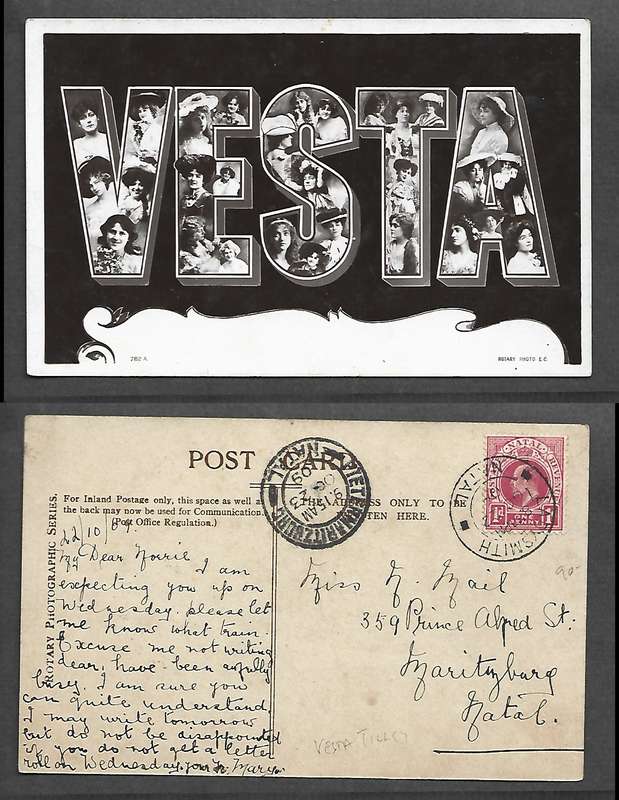 VESTA
2162 A.
ROTARY PHOTO E.C.
POST CARD
For Inland Postage only, this space as well as
the back may now be used for Communication.
(Post Office Regulation.)
THE ADDRESS ONLY TO BE
WRITTEN HERE.
ROTARY PHOTOGRAPHIC SERIES.
PIETERMARITZBURG
9.15 AM
OC 23
09
NATAL
LADYSMITH
NATAL
NATAL REVENUE
1D
ONE
PENNY
22/10/09.
My Dear Norrie
I am
expecting you up on
Wednesday. please let
me know what train.
Excuse me not writing
dear, have been awfully
busy. I am sure you
can quite understand,
I may write tomorrow
but do not be disappointed
if you do not get a letter
roll on Wednesday. your
Miss N. Mail
359 Prince Alfred St:
Maritzburg
Natal.
VESTA TILLEY
90-